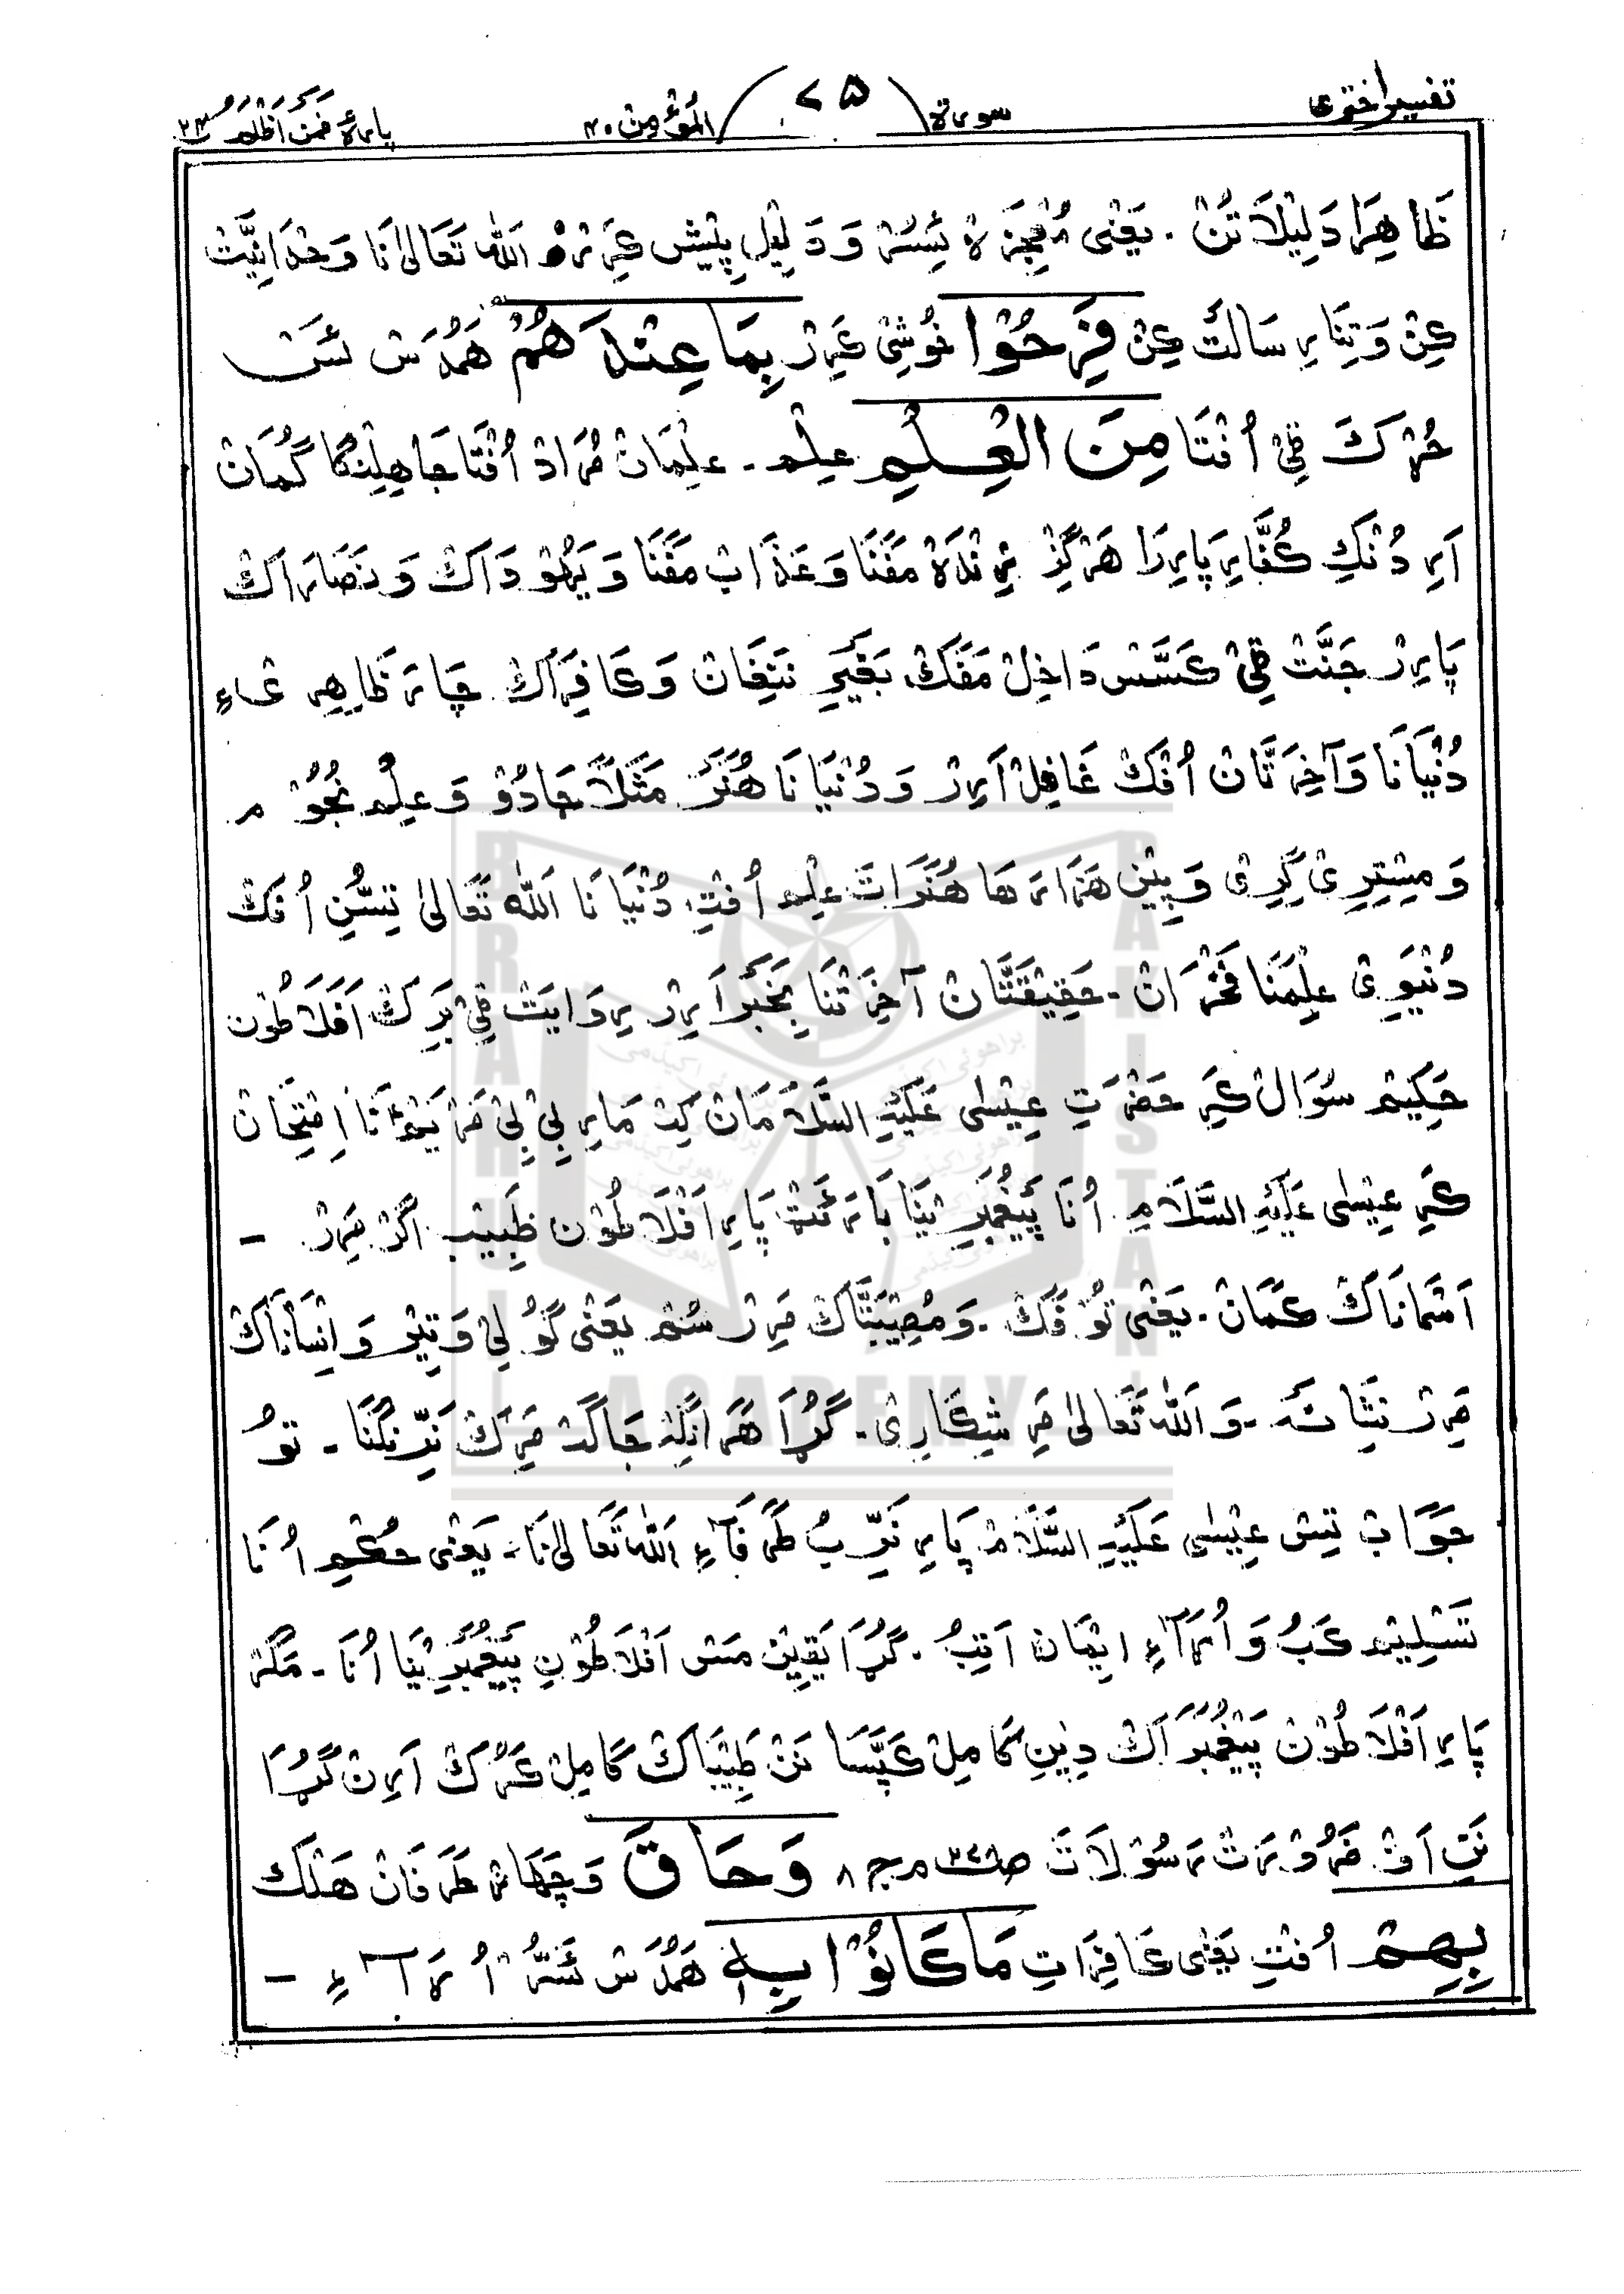 تفسیر اختری
سورة
۷۵
المؤمن ۴۰
پارۀ فمن اظلم ۲۴
ظَاهِرَا دَلِیْلَاتَنْ . یَعْنِی مُعْجِزَہ ئَسَّہ وَ دَلِیْلِ پِیْش کِرِیْرہ اَللہ تَعَالیٰ نَا وَحْدَانِیَّتْ
کِنْ وَتِنَا رِسَالَتْ کِنْ فَرِحُوْا خُوْشِیْ کِرِیْرْ بِمَا عِنْدَهُمْ هَمُدَسْ ئَسْ
حُرْ کَ فِیْ اُفْتَا مِنَ الْعِلْمِ عِلْم - عِلْمَانْ مُرَادْ اُفْتَا جَاهِلِنْگَا گُمَانْ
اَرِ دُنْکِ کُفَّار پَارِرَا هَرْگِزْ زِنْدَہ مَفَنَا وَعَذَابْ مَفَنَا وَیَهُوْدَاکْ وَنَصَارَاکْ
پَارِرْ جَنَّتْ فِیْ کَسَّسْ دَاخِلْ مَفَکْ، بَغَیْرِ نَنِفَانْ وَکَافِرَاکْ چَارَ ظَاهِرِ غَاءِ
دُنْیَانَا وَآخِرَتَانْ اُفْکْ غَافِلْ اَرِرْ وَدُنْیَانَا هُنَرْ مَثَلًا جَادُوْ وَعِلْم نُجُوْم
وَمِسْتِرِیْ گِرِیْ وَپِیْن هَزَارَهَا هُنَرَاتَ عِلْم اُفْتِ، دُنْیَانَا اَللہ تَعَالیٰ تِسُّنِ اُفْکْ
دُنْیَوِیْ عِلْمَنَا فَخْرَانْ - حَقِیْقَتَّانْ آخِرَتْنَا بِخَبَرْ اَرِرْ رِوَایَتْ فِیْ بَرِکْ اَفَلَاطُوْن
حَکِیْم سُوَالْ کَرِ حَضْرَتِ عِیْسٰی عَلَیْهِ السَّلَامَانْ کِہ مَارِ بِیْ بِیْ مَرْیَمْ نَا اِمْتِحَانْ
کَرِ عِیْسٰی عَلَیْهِ السَّلَامِ اُنَا پَیْغَمْبَرِیْنَا بَارَئَتْ پَارِ اَفْلَاطُوْن طَبِیْب اَگَرْ مَرِرْ -
اَسْمَانَاکْ کَمَانْ - یَعْنِی تُوْفَکْ - وَمُصِیْبَتَّاکْ مَرِرْ سُنْم یَعْنِی گُوْلِیْ وَتِیْر وَاِنْسَانَاکْ
مَرِرْ نِشَانَہ - وَاَللہ تَعَالیٰ مَرِ شِکَارِیْ - گُڑَا هَرَانِگ جَاگَہ مَرِکْ نَرِّنِنْگْنَا - تَوْ
جَوَابْ تِسْ عِیْسٰی عَلَیْهِ السَّلَامْ پَارِ نَرِّبُ طَرَفَآءِ اَللہ تَعَالیٰ نَا - یَعْنِی حُکْمِ اُنَا
تَسْلِیْم کَبُ وَاُرَآءِ اِیْمَان اَتِبُ - گُڑَا یَقِیْن مَسْ اَفْلَاطُوْنِ پَیْغَمْبَرِیْنَا اُنَا - مَگَر
پَارِ اَفْلَاطُوْنْ پَیْغَمْبَرَاکْ دِیْنِ کَامِلْ کَپَّسَا نَنْ طَبِیْبَاکْ کَامِلْ کَرْکْ اَرِنْ گُڑَا
نَنِ اَفْ ضَرُوْرَتْ رَسُوْلَاتَ ص۳۷۸ م ج ۸ وَحَاقَ وَچَهَار طَرَفَانْ هَلْکْ
بِهِمْ اُفْتِ یَعْنِی کَافِرَاتِ مَا کَانُوْا بِهٖ هَمُدَسْ ئَسُّرْ اُرَآءِ -
BRAHUI
ACADEMY
PAKISTAN